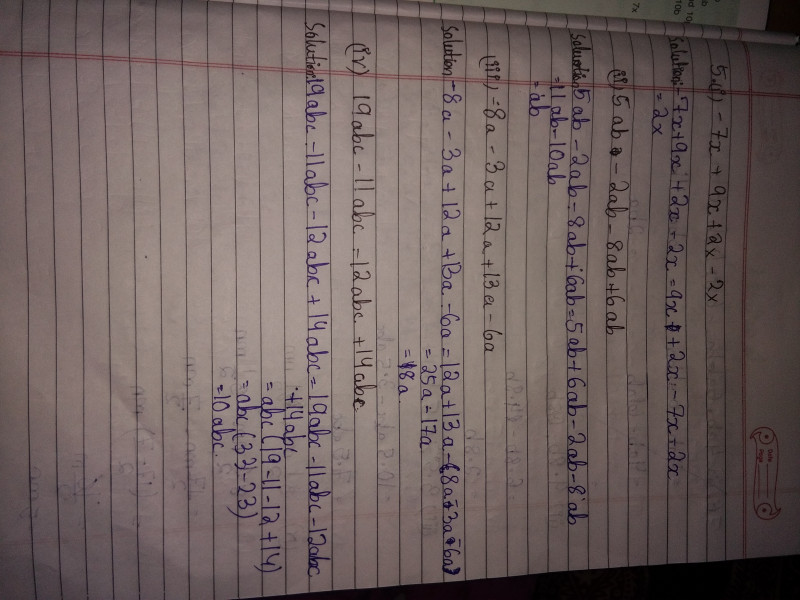 5.(i) -7x + 9x + 2x - 2x
Solution:- 7x + 9x + 2x - 2x = 9x + 2x - 7x - 2x
= 2x
(ii) 5ab - 2ab - 8ab + 6ab
Solution: 5ab - 2ab - 8ab + 6ab = 5ab + 6ab - 2ab - 8ab
= 11ab - 10ab
= ab
(iii) -8a - 3a + 12a + 13a - 6a
Solution - 8a - 3a + 12a + 13a - 6a = 12a + 13a - 8a - 3a - 6a
= 25a - 17a
= 8a
(iv) 19abc - 11abc - 12abc + 14abc
Solution: 19abc - 11abc - 12abc + 14abc = 19abc - 11abc - 12abc
+ 14abc
= abc (19 - 11 - 12 + 14)
= abc (33 - 23)
= 10abc